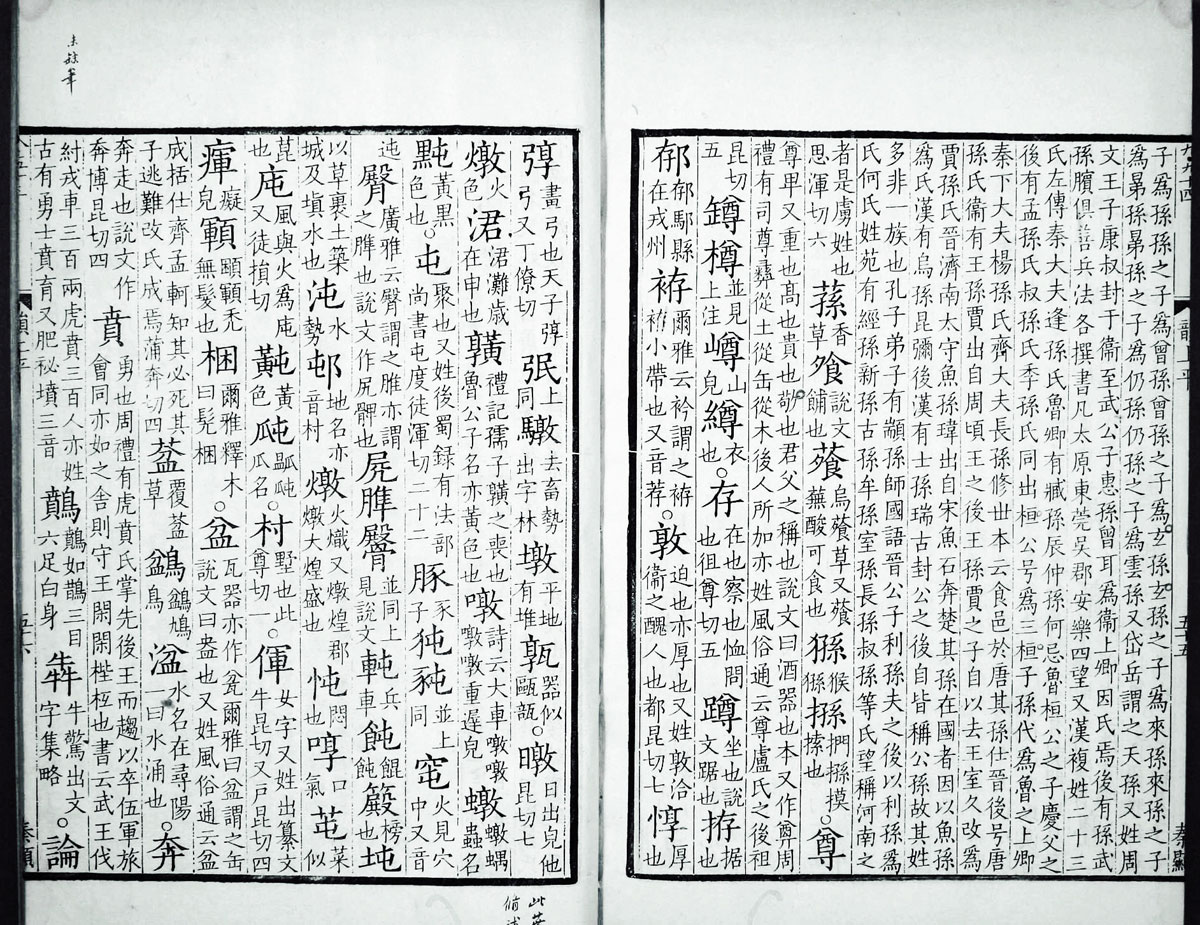 子子爲孫孫之子爲曾孫曾孫之子爲玄孫玄孫之子爲來孫來孫之子
爲昴孫昴孫之子爲仍孫仍孫之子爲雲孫又岱岳謂之天孫又姓周
文王子康叔封于衞至武公子惠孫曾耳爲衞上卿因氏焉後有孫武
孫臏俱善兵法各撰書凡太原東莞吳郡安樂四望又漢複姓二十三
氏左傳秦大夫逢孫氏魯卿有臧孫辰仲孫何忌魯桓公之子慶父之
後有孟孫氏叔孫氏季孫氏同出桓公号爲三桓子孫代爲魯之上卿
秦下大夫楊孫氏齊大夫長孫修世本云食邑於唐其孫仕晉後号唐
孫氏衞有王孫賈出自周頃王之後王孫賈之子自以去王室久改爲
賈孫氏晉濟南太守魚孫瑋出自宋魚石奔楚其孫在國者因以魚孫
爲氏漢有烏孫昆彌後漢有士孫瑞古封公之後自皆稱公孫故其姓
多非一族也孔子弟子有顓孫師國語晉公子利孫夫之後以利孫爲
氏何氏姓苑有經孫新孫古孫牟孫室孫長孫叔孫等氏望稱河南之
者是虜姓也思渾切六 蓀香草 飱説文餔也 蕵烏蕵草又蕵蕪酸可食也 猻猴猻 搎捫搎摸㨞也 尊
尊卑又重也高也貴也敬也君父之稱也説文曰酒器也本又作尊周
禮有司尊彝從土從缶從木後人所加亦姓風俗通云尊盧氏之後祖
昆切五 罇樽並見上注 嶟山皃 繜衣也 存在也察也恤問也徂尊切五 蹲坐也説文踞也 拵据也
縣在戎州 袸爾雅云衿謂之袸袸小帶也又音荐 敦迫也亦厚也又姓敦洽衞之醜人也都昆切七 惇厚也
弴畫弓也天子弴弓又丁僚切 上同 驐去畜勢出字林 墩平地有堆 器似甌瓿 暾日出皃他昆切七
燉火色 涒涒灘歲在申也 禮記孺子之喪也魯公子名亦黃色也 噋詩云大車噋噋噋噋重遲皃 蟲名
黗黃黑色也 屯聚也又姓後蜀録有法部尚書屯度徒渾切二十二 豚豕子 㹠豘並上同 窀火見穴中又音
迍 臀廣雅云臀謂之脽亦謂之也説文作㞘髀也 㞘脽臋並見説文 軘兵車 飩餛飩 榜也 坉
以草裹土築城及塡水也 沌水勢 邨地名亦音村 燉火熾又燉煌郡燉大煌盛也 忳悶也 啍口氣 芚菜似
莧也 庉風與火爲庉又徒損切 黃色 瓜名 村墅也此尊切一 女字又姓出纂文牛昆切又戸昆切四
癡皃 顐禿無髮也 梱爾雅釋木曰髠梱 盆瓦器亦作瓫爾雅曰盆謂之缶説文曰盎也又姓風俗通云盆
成括仕齊孟軻知其必死其子逃難改氏成焉蒲奔切四 葐覆葐草 鳩鳥 湓水名在尋陽一曰水涌也 奔
奔走也説文作奔博昆切四 賁勇也周禮有虎賁氏掌先後王而趨以卒伍軍旅會同亦如之舍則守王閑閑梐枑也書云武王伐
紂戎車三百兩虎賁三百人亦姓古有勇士賁育又肥祕墳三音 鷬鷬如鵲三目六足白身 犇牛驚出文字集略 論